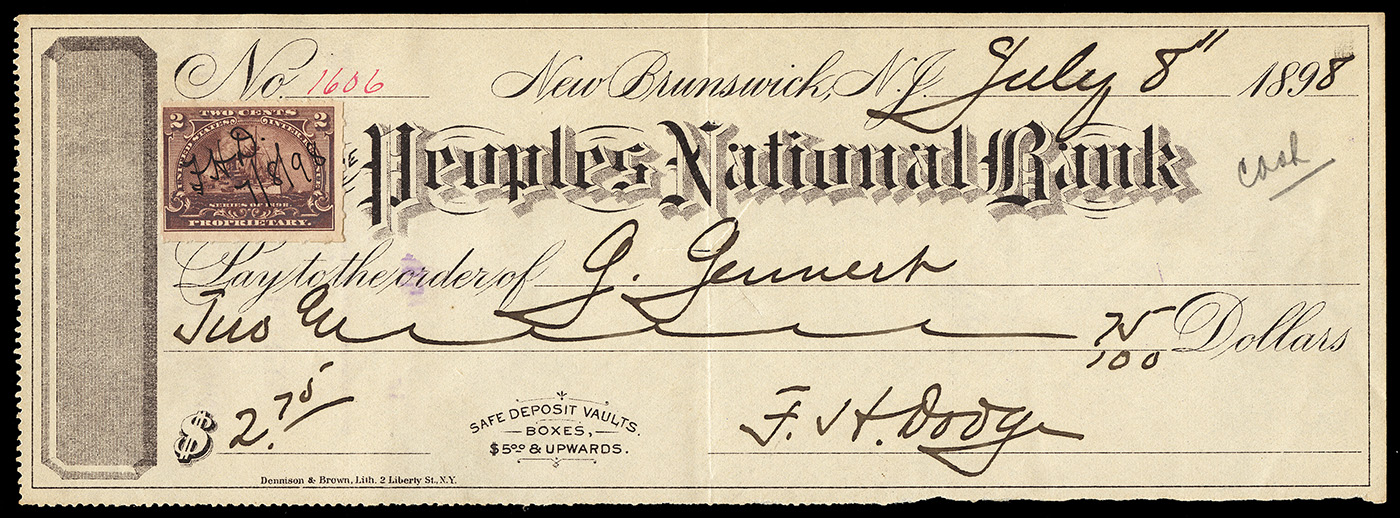 No. 1606 New Brunswick, N.J. July 8" 1898
2 TWO CENTS 2
UNITED STATES INTERNAL REVENUE
F.H.D.
7/8/98
SERIES OF 1898
PROPRIETARY.
THE Peoples National Bank
cash
Pay to the order of G. Gennert
Two 75/100 Dollars
$ 2.75
SAFE DEPOSIT VAULTS.
BOXES,
$5.00 & UPWARDS.
F. H. Dodge
Dennison & Brown, Lith. 2 Liberty St., N.Y.